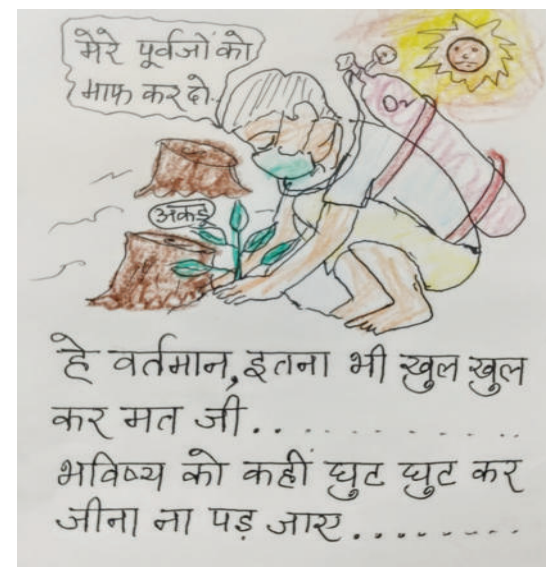 मेरे पूर्वजों को
माफ कर दो..
O₂
अकड़
हे वर्तमान, इतना भी खुल खुल
कर मत जी . . . . . . . . . . . .
भविष्य को कहीं घुट घुट कर
जीना ना पड़ जाए . . . . . . . . .